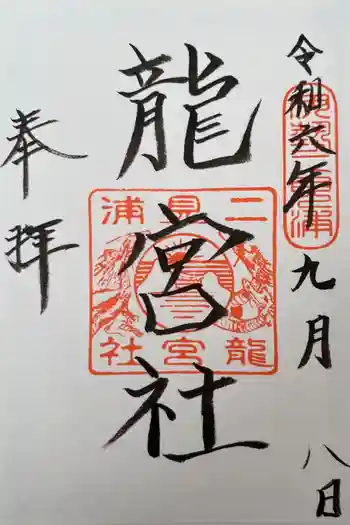 令和六年九月八日
龍宮社
奉拝
二見浦
龍宮社